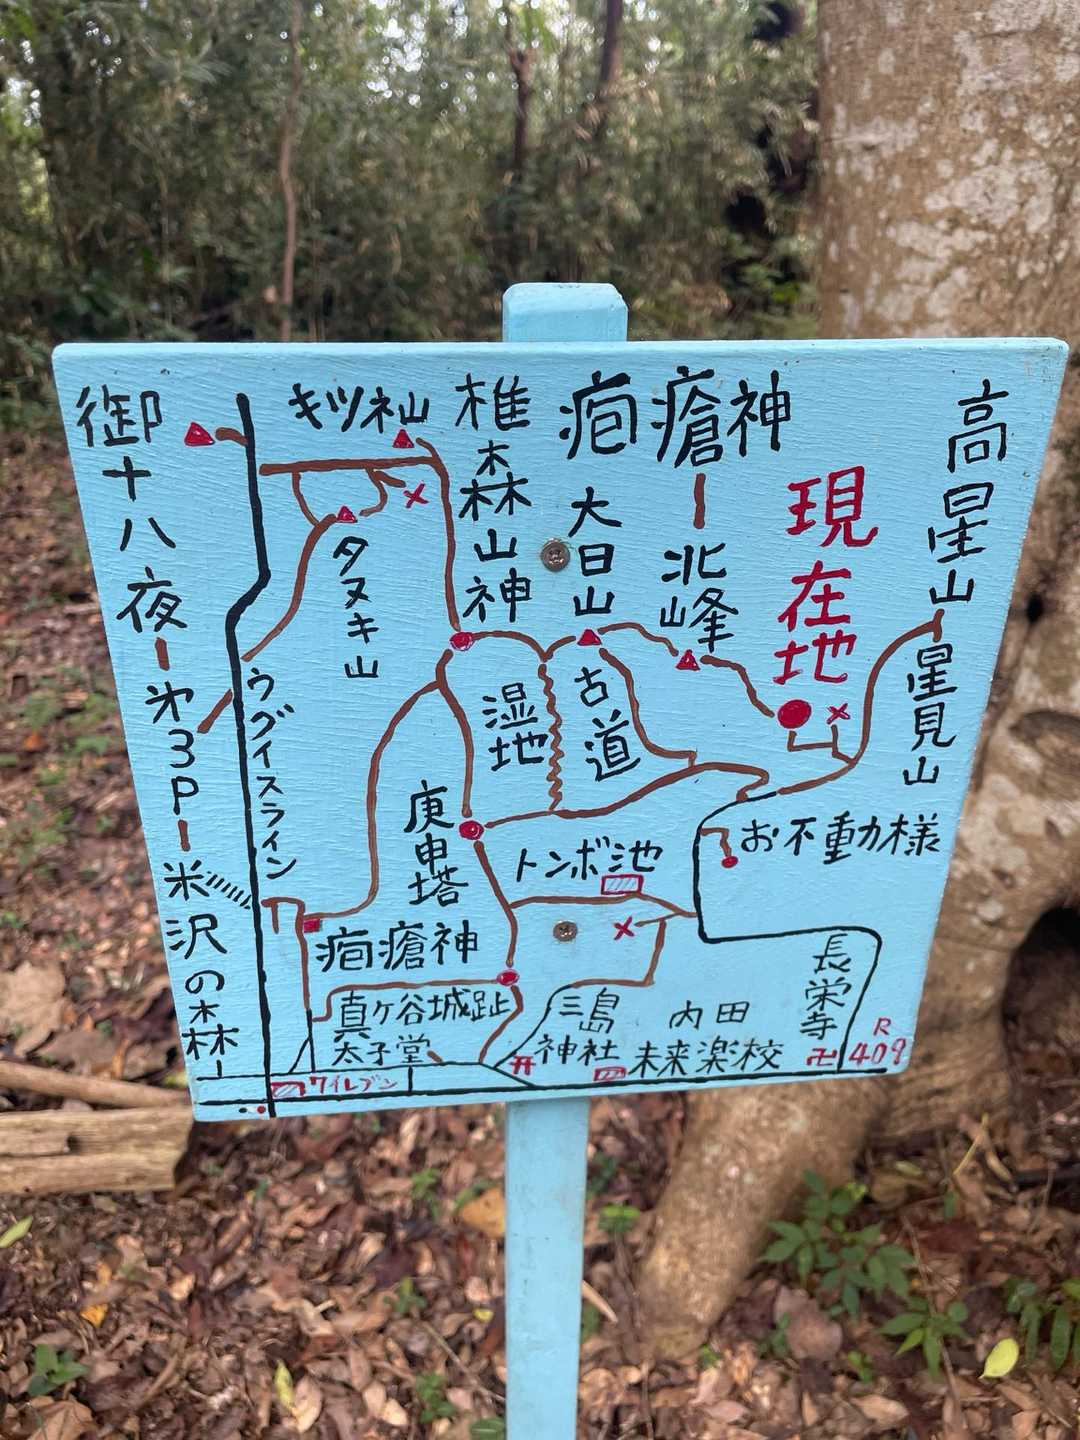 御十八夜
キツネ山
椎森山神
疱瘡神
高星山
大日山
北峰
現在地
タヌキ山
星見山
古道
湿地
第3P
ウグイスライン
庚申塔
トンボ池
お不動様
米沢の森
疱瘡神
長栄寺
真ケ谷城趾
三島神社
内田未来楽校
太子堂
卍
R409
ワイレブン